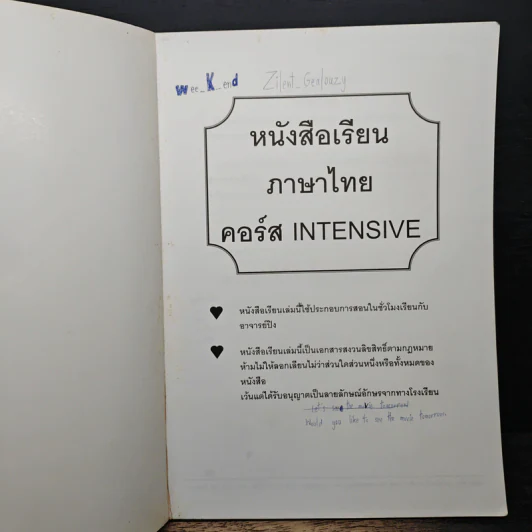 wee_K_end Zilent_Gealouzy
หนังสือเรียน
ภาษาไทย
คอร์ส INTENSIVE
หนังสือเรียนเล่มนี้ใช้ประกอบการสอนในชั่วโมงเรียนกับ
อาจารย์ปิง
หนังสือเรียนเล่มนี้เป็นเอกสารสงวนลิขสิทธิ์ตามกฎหมาย
ห้ามไม่ให้ลอกเลียนไม่ว่าส่วนใดส่วนหนึ่งหรือทั้งหมดของ
หนังสือ
เว้นแต่ได้รับอนุญาตเป็นลายลักษณ์อักษรจากทางโรงเรียน
the movie tomorrow
Would you like to see the movie tomorrow